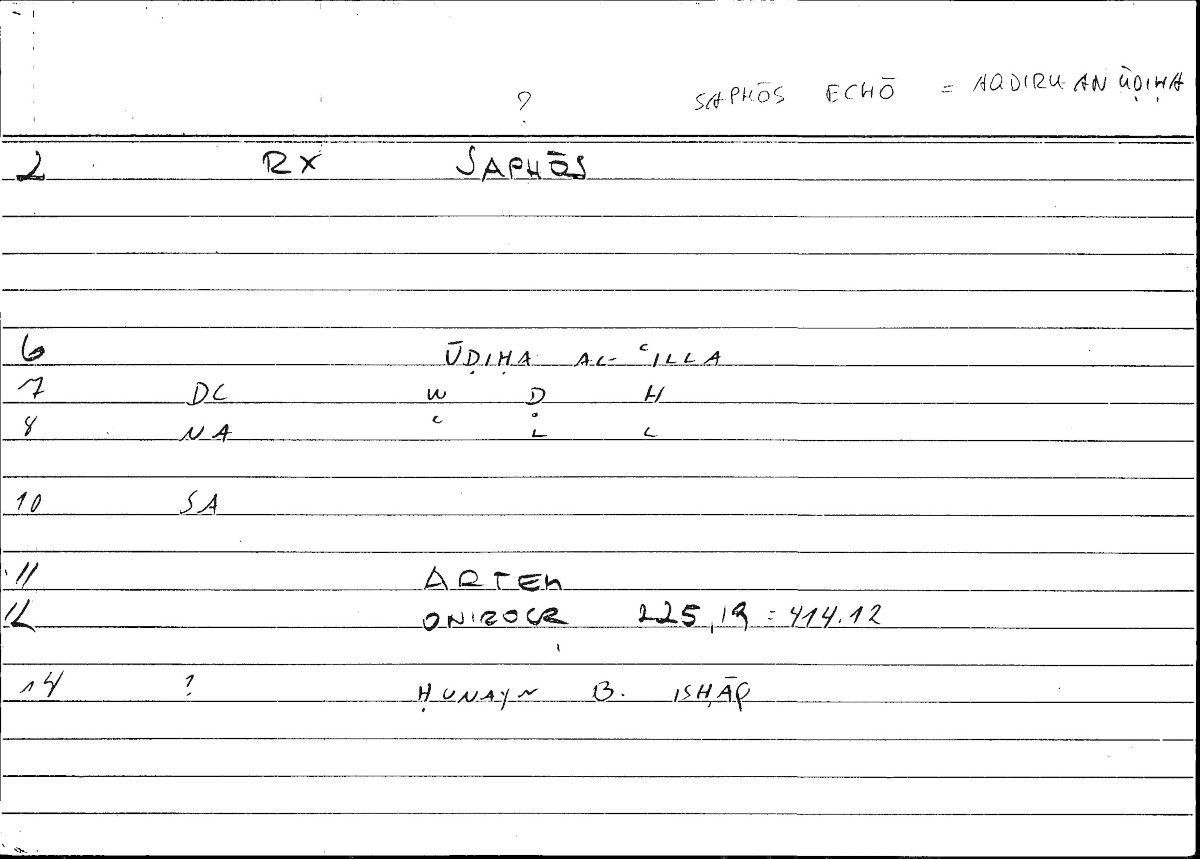 ? SAPHŌS ECHŌ = AQDIRU AN ŪḌIḤA
2 RX SAPHŌS
6 ŪḌIḤA AL-ʿILLA
7 DC W Ḍ Ḥ
8 NA ʿ L L
10 SA
11 ARTEM
12 ONIROCR 225,19 = 414.12
14 ? ḤUNAYN B. ISḤĀQ